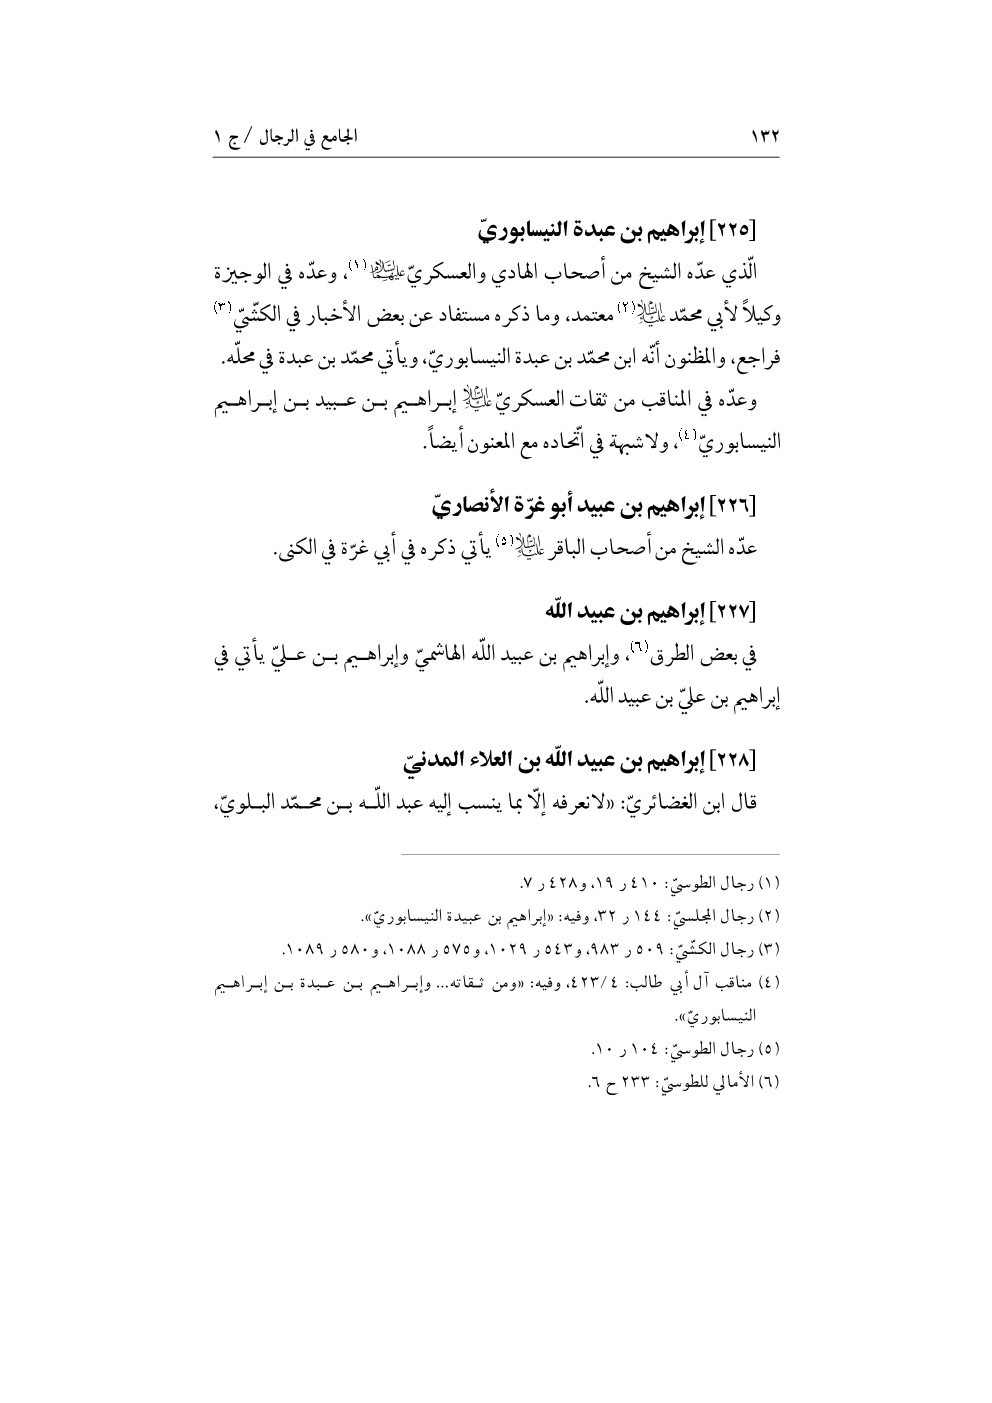 ١٣٢ الجامع في الرجال / ج ١
[٢٢٥] إبراهيم بن عبدة النيسابوريّ
الّذي عدّه الشيخ من أصحاب الهادي والعسكريّ عليهما السلام (١)، وعدّه في الوجيزة
وكيلاً لأبي محمّد عليه السلام (٢) معتمد، وما ذكره مستفاد عن بعض الأخبار في الكشّيّ (٣)
فراجع، والمظنون أنّه ابن محمّد بن عبدة النيسابوريّ، ويأتي محمّد بن عبدة في محلّه.
وعدّه في المناقب من ثقات العسكريّ عليه السلام إبراهيم بن عبيد بن إبراهيم
النيسابوريّ (٤)، ولا شبهة في اتّحاده مع المعنون أيضاً.
[٢٢٦] إبراهيم بن عبيد أبو غرّة الأنصاريّ
عدّه الشيخ من أصحاب الباقر عليه السلام (٥) يأتي ذكره في أبي غرّة في الكنى.
[٢٢٧] إبراهيم بن عبيد اللّه
في بعض الطرق (٦)، وإبراهيم بن عبيد اللّه الهاشميّ وإبراهيم بن عليّ يأتي في
إبراهيم بن عليّ بن عبيد اللّه.
[٢٢٨] إبراهيم بن عبيد اللّه بن العلاء المدنيّ
قال ابن الغضائريّ: «لانعرفه إلّا بما ينسب إليه عبد اللّه بن محمّد البلويّ،
(١) رجال الطوسيّ: ٤١٠ ر ١٩، و٤٢٨ ر ٧.
(٢) رجال المجلسيّ: ١٤٤ ر ٣٢، وفيه: «إبراهيم بن عبيدة النيسابوريّ».
(٣) رجال الكشّيّ: ٥٠٩ ر ٩٨٣، و٥٤٣ ر ١٠٢٩، و٥٧٥ ر ١٠٨٨، و٥٨٠ ر ١٠٨٩.
(٤) مناقب آل أبي طالب: ٤/ ٤٢٣، وفيه: «ومن ثقاته... وإبراهيم بن عبدة بن إبراهيم
النيسابوريّ».
(٥) رجال الطوسيّ: ١٠٤ ر ١٠.
(٦) الأمالي للطوسيّ: ٢٣٣ ح ٦.